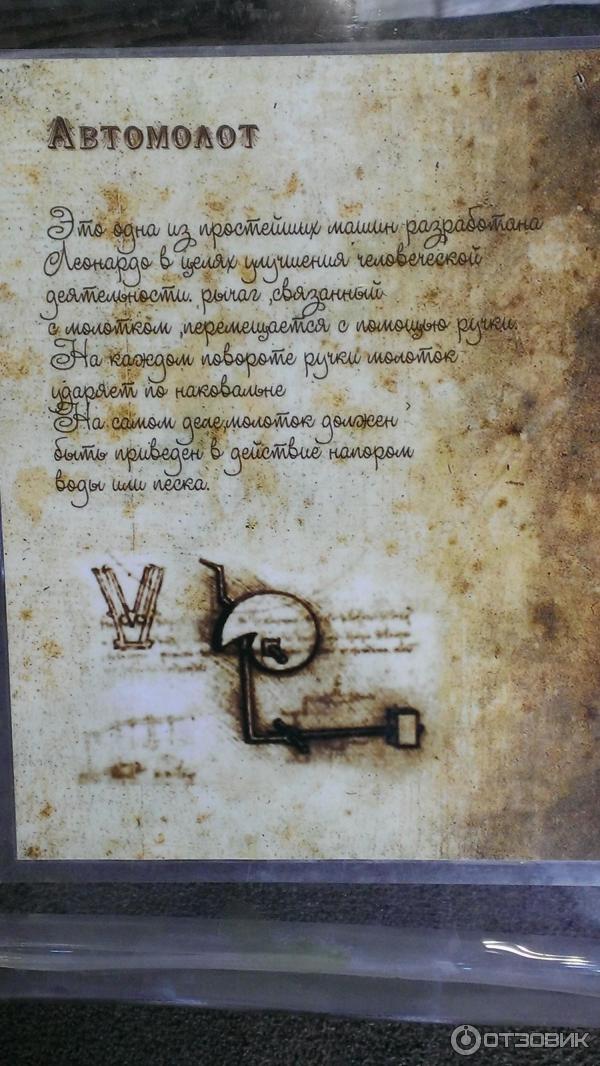 Автомолот
Это одна из простейших машин разработана
Леонардо в целях улучшения человеческой
деятельности. рычаг ,связанный
с молотком ,перемещается с помощью ручки.
На каждом повороте ручки молоток
ударяет по наковальне
На самом деле,молоток должен
быть приведен в действие напором
воды или песка.
ОТЗОВИК